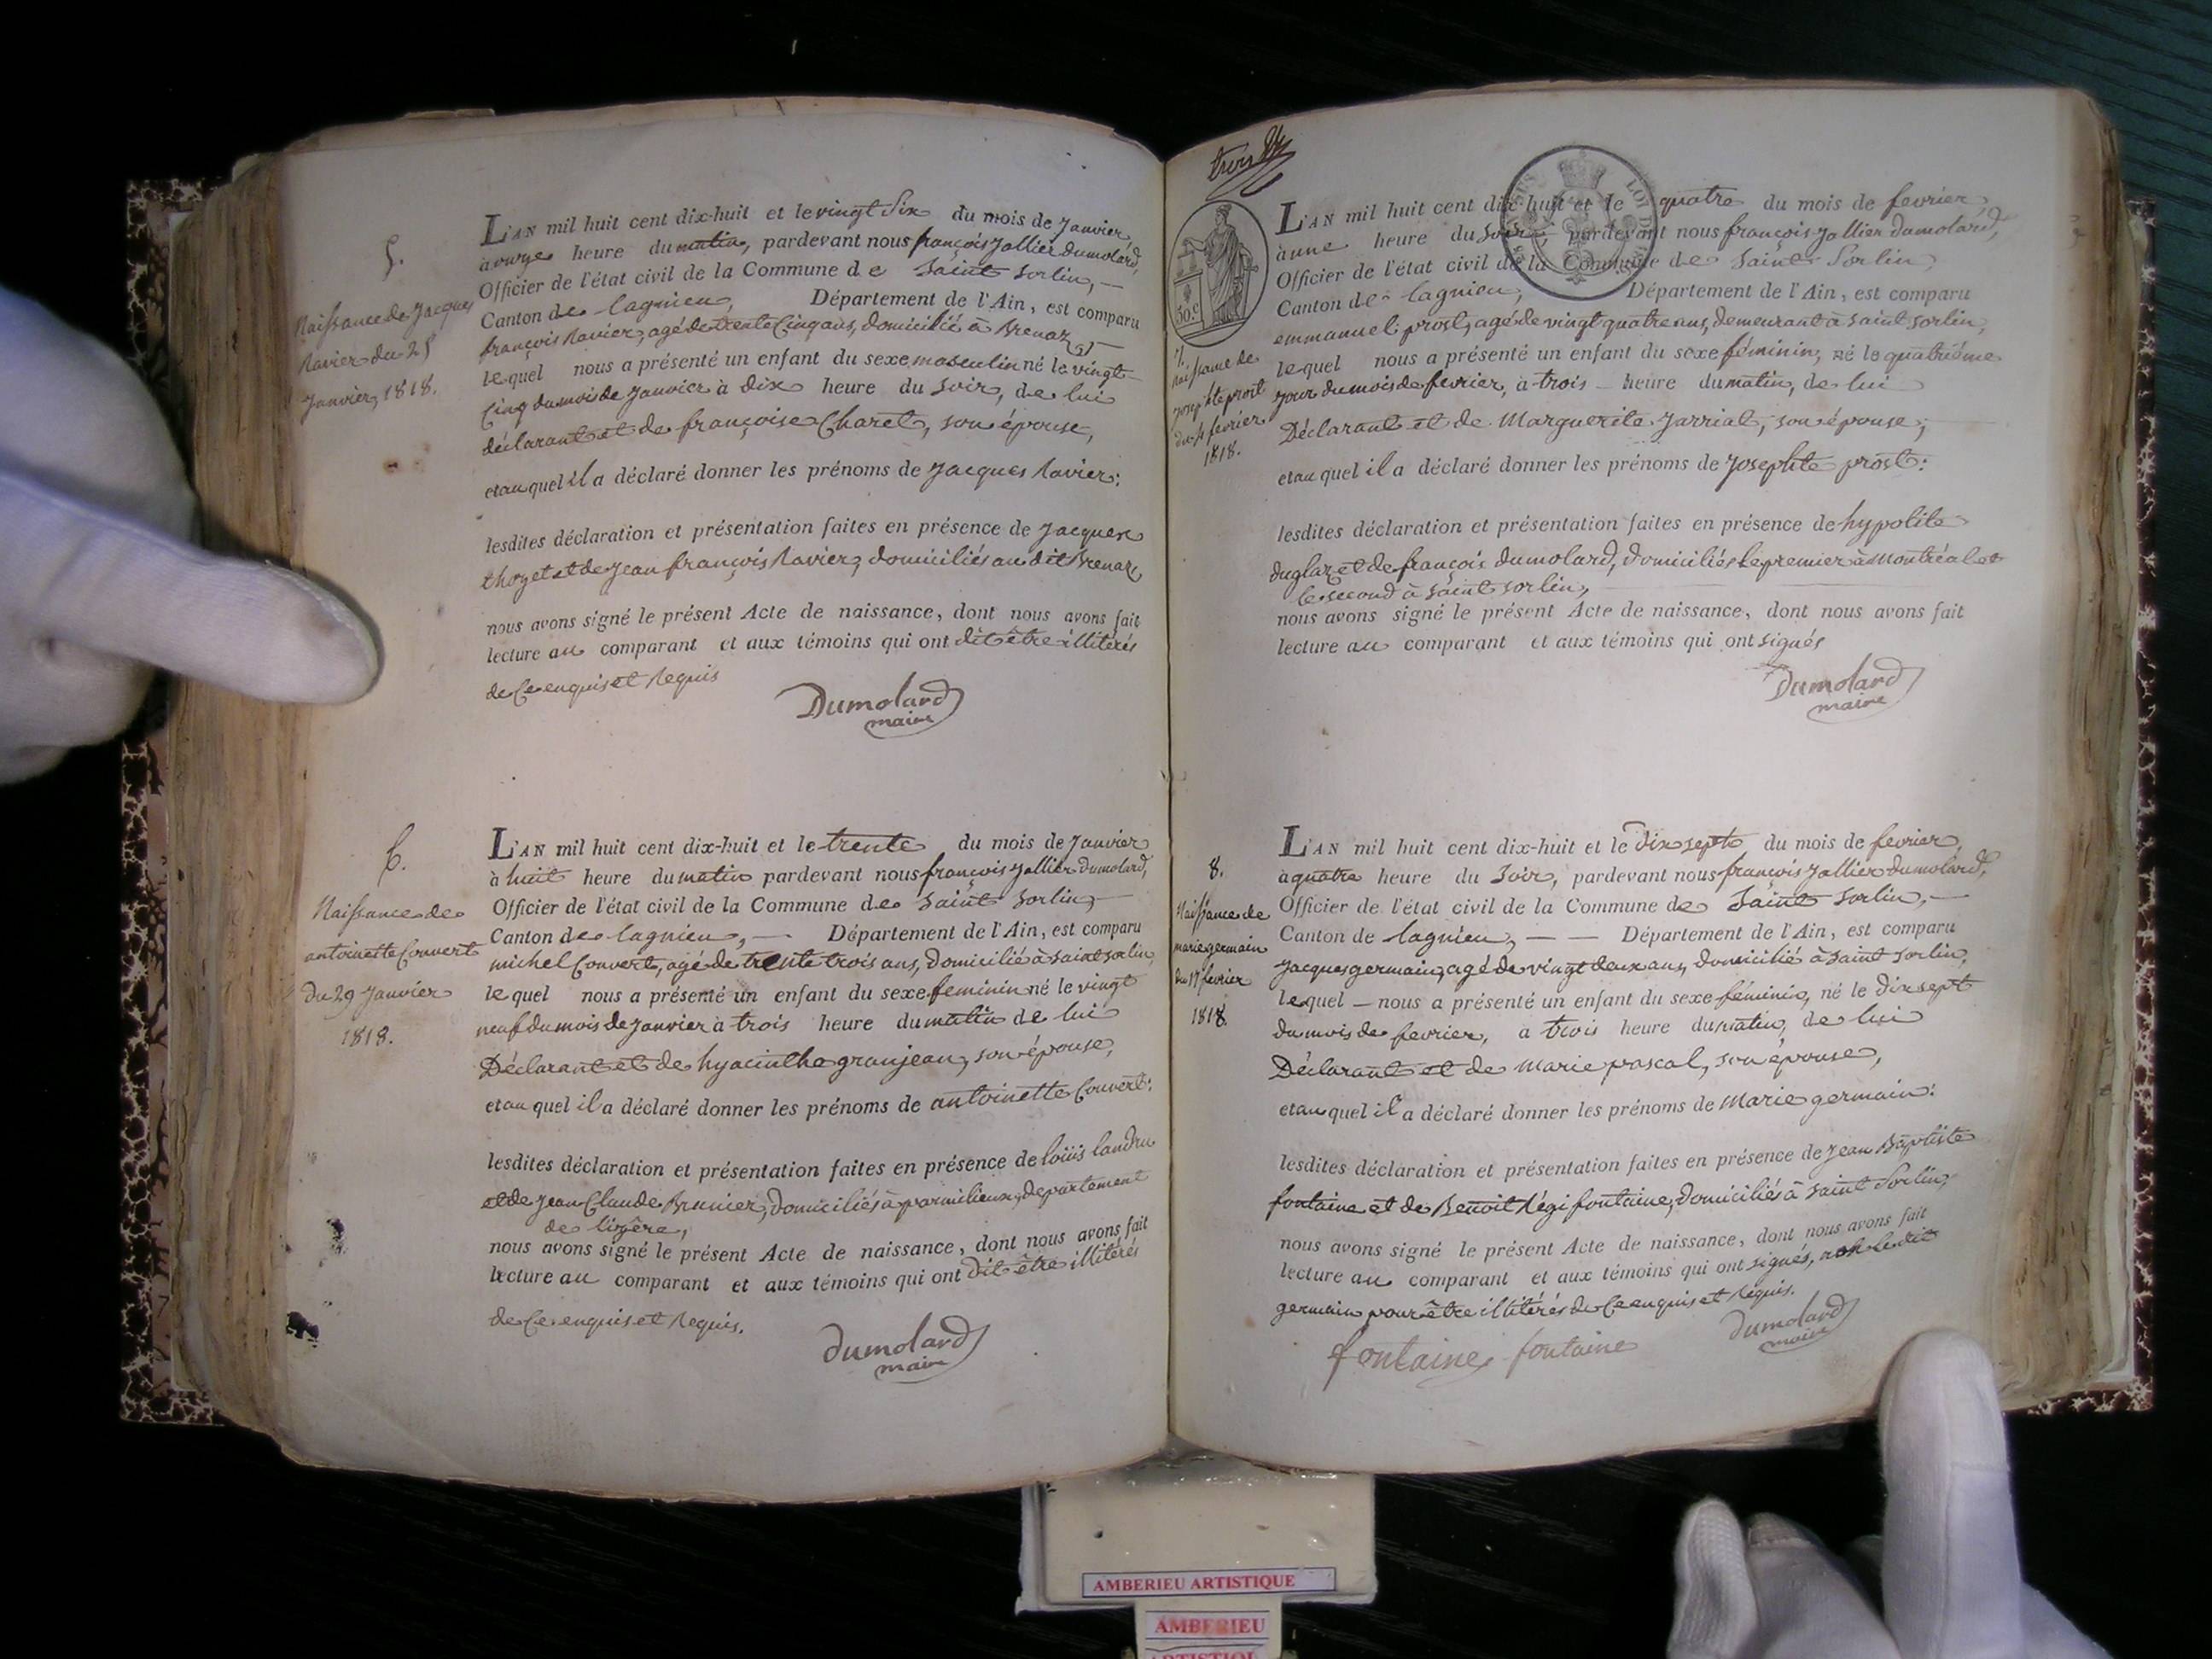 5.
Naissance de Jacques
Ravier du 25
Janvier, 1818.
L'AN mil huit cent dix-huit et le vingt Six du mois de Janvier
à onze heure du matin, pardevant nous françois Jallier dumolard,
Officier de l'état civil de la Commune de Saint Sorlin, —
Canton de lagnieu, Département de l'Ain, est comparu
françois Ravier, agé de trente Cinq ans, domicilié à Brenaz
lequel nous a présenté un enfant du sexe masculin né le vingt
Cinq du mois de Janvier à dix heure du soir, de lui
déclarant et de françoise Charet, son épouse,
et au quel il a déclaré donner les prénoms de Jacques Ravier:
lesdites déclaration et présentation faites en présence de Jacques
thozet et de Jean françois Ravier, domiciliés au dit Brenaz
nous avons signé le présent Acte de naissance, dont nous avons fait
lecture au comparant et aux témoins qui ont dit être illitérés
de Ce enquis et Requis
Dumolard
maire
6.
Naissance de
antoinette Couvert
du 29 Janvier
1818.
L'AN mil huit cent dix-huit et le trente du mois de Janvier
à huit heure du matin pardevant nous françois Jallier dumolard,
Officier de l'état civil de la Commune de Saint Sorlin, —
Canton de lagnieu, — Département de l'Ain, est comparu
michel Couvert, agé de trente trois ans, domicilié à saint sorlin,
lequel nous a présenté un enfant du sexe feminin né le vingt
neuf du mois de Janvier à trois heure du matin de lui
Déclarant et de hyacintha granjean, son épouse,
et au quel il a déclaré donner les prénoms de antoinette Couvert:
lesdites déclaration et présentation faites en présence de loüis landru
et de Jean Claude Brunier, domiciliés à parmilieux, departement
de lizère,
nous avons signé le présent Acte de naissance, dont nous avons fait
lecture au comparant et aux témoins qui ont dit être illitérés
de Ce enquis et Requis.
dumolard
maire
trois
30.c
LOI DE
7.
Naissance de
Josephte prost
du 4 fevrier
1818.
L'AN mil huit cent dix-huit et le quatre du mois de fevrier
à une heure du Soir, pardevant nous françois Jallier dumolard,
Officier de l'état civil de la Commune de Saint Sorlin,
Canton de lagnieu, Département de l'Ain, est comparu
emmanuel prost, agé de vingt quatre ans, demeurant à saint sorlin,
lequel nous a présenté un enfant du sexe féminin, né le quatrième
jour du mois de fevrier, à trois — heure du matin, de lui
Déclarant et de Marguerite Jarriat, son épouse,
et au quel il a déclaré donner les prénoms de Josephte prost:
lesdites déclaration et présentation faites en présence de hypolite
duglaz et de françois dumolard, domiciliés le premier à Montréal et
le second à saint sorlin,
nous avons signé le présent Acte de naissance, dont nous avons fait
lecture au comparant et aux témoins qui ont signés
Dumolard
maire
8.
Naissance de
marie germain
du 17 fevrier
1818.
L'AN mil huit cent dix-huit et le dix sept du mois de fevrier,
à quatre heure du Soir, pardevant nous françois Jallier dumolard,
Officier de l'état civil de la Commune de Saint Sorlin, —
Canton de lagnieu, — — Département de l'Ain, est comparu
Jacques germain, agé de vingt deux ans, domicilié à saint sorlin,
lequel — nous a présenté un enfant du sexe féminin, né le dix sept
du mois de fevrier, à trois heure du matin, de lui
Déclarant et de marie pascal, son épouse,
et au quel il a déclaré donner les prénoms de Marie germain:
lesdites déclaration et présentation faites en présence de Jean Baptiste
fontaine et de Benoit Régi fontaine, domiciliés à saint Sorlin,
nous avons signé le présent Acte de naissance, dont nous avons fait
lecture au comparant et aux témoins qui ont signés, non le dit
germain pour être illitérés de Ce enquis et Requis.
fontaine fontaine dumolard
maire
AMBERIEU ARTISTIQUE
AMBERIEU
ARTISTIQUE